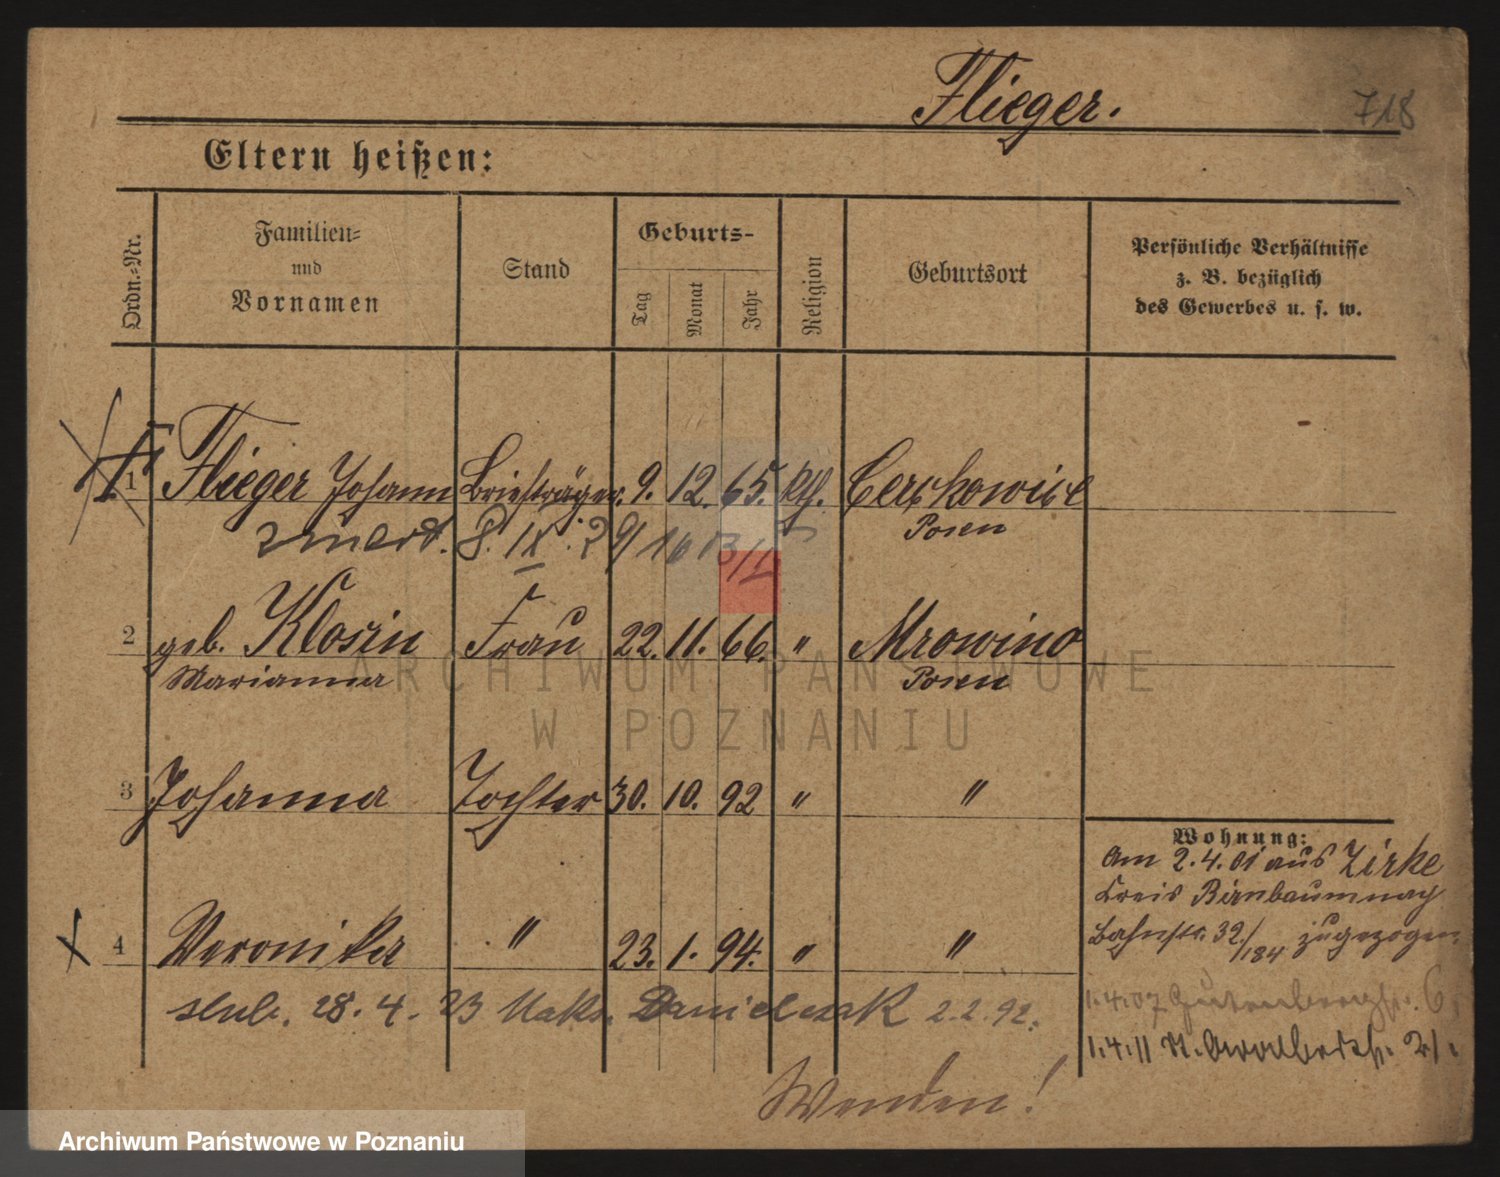 Flieger. 718
Eltern heißen:
Ordn.-Nr.
Familien-
und
Vornamen
Stand
Geburts-
Tag
Monat
Jahr
Religion
Geburtsort
Persönliche Verhältnisse
z. B. bezüglich
des Gewerbes u. s. w.
1 Flieger Johann Briefträger. 9. 12. 65. kth. Cerekowice
Posen
zmarł. 8. IX. 29
2 geb. Klosin Frau 22. 11. 66. " Mrowino
Marianna Posen
3 Johanna Tochter 30. 10. 92 " "
4 Veronika " 23. 1. 94. " "
ślub. 28. 4. 23 Maks. Danielczak 2.2.92.
Wohnung:
Am 2.4.01 aus Zirke
Kreis Birnbaum nach
Bahnstr. 32/184 zugezogen.
1.4.07 Gutenbergstr. 6.
1.4.11 21.
Wenden!
ARCHIWUM PAŃSTWOWE
W POZNANIU
Archiwum Państwowe w Poznaniu